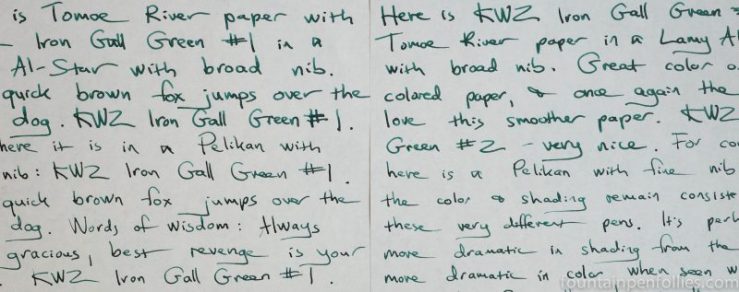 is Tomoe River paper with
– Iron Gall Green #1 in a
Al-Star with broad nib.
quick brown fox jumps over the
dog. KWZ Iron Gall Green #1.
here it is in a Pelikan with
nib: KWZ Iron Gall Green #1.
quick brown fox jumps over the
dog. Words of wisdom: Always
gracious, best revenge is your
. KWZ Iron Gall Green #1.
Here is KWZ Iron Gall Green
Tomoe River paper in a Lamy Al
with broad nib. Great color o
colored paper, & once again the
love this smoother paper. KWZ
Green #2 – very nice. For co
here is a Pelikan with fine nib
the color & shading remain consiste
these very different pens. It's perh
more dramatic in shading from the
more dramatic in color when seen w
fountainpenfollies.com